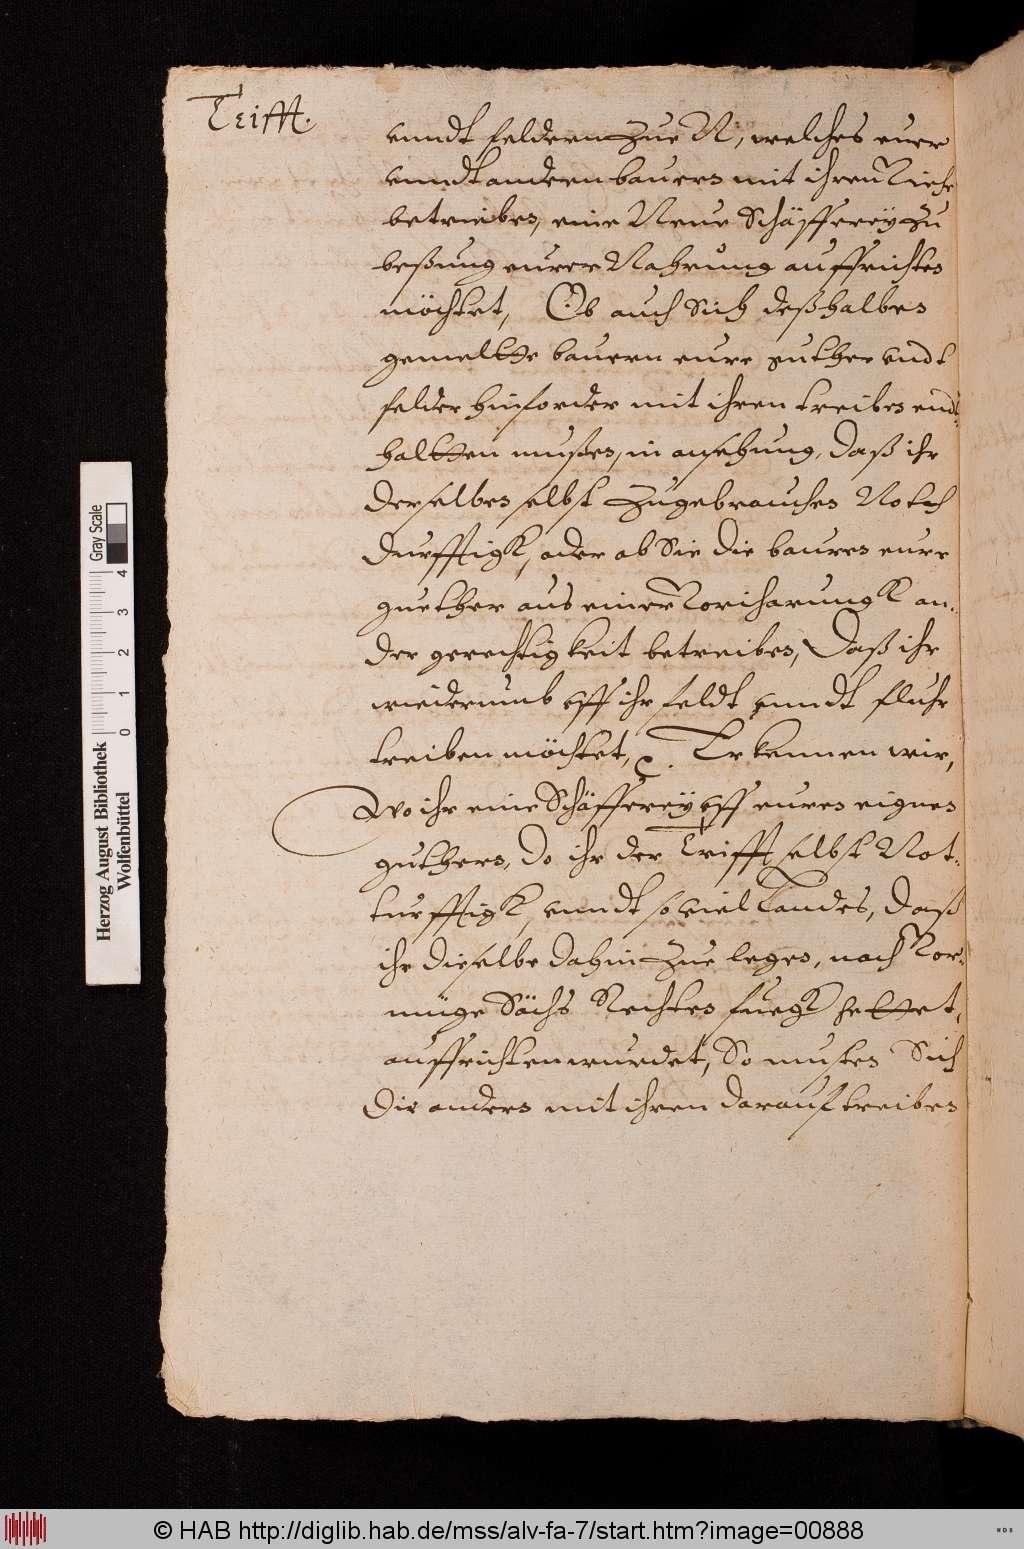 Trifft.
vnndt feldern zue N, welches eure
vnndt andern bauern mit ihren Viehe
betrieben, eine Neue Schäfferey zu
beßrung eurer Nahrung auffrichten
möchtet, Ob auch Sich deßhalben
gemeltte bauern eure guther vndt
felder hinforder mit ihren treiben endt-
haltten musten, in ansehung, Daß ihr
derselben selbst zugebrauchen Noth
durfftigk, oder ob Sie die bauren eure
guether aus einer Vorjharungk an-
der gerechtigkeit betreiben, Daß ihr
wiederumb vff ihr feldt vnndt fluhr
treiben möchtet, Erkennen wir,
Wo ihr eine Schäfferey vff euren eignen
guthern, do ihr der Trifft selbst Not-
turfftigk, vnndt so viel Landes, Daß
ihr dieselbe dahin zue legen, nach Vor-
müge Sächs Rechten fuegk hettet,
auffrichten wurdet, So musten Sich
Die andern mit ihren darauf treiben
Herzog August Bibliothek
Wolfenbüttel
0 1 2 3 4
Gray Scale
© HAB http://diglib.hab.de/mss/alv-fa-7/start.htm?image=00888